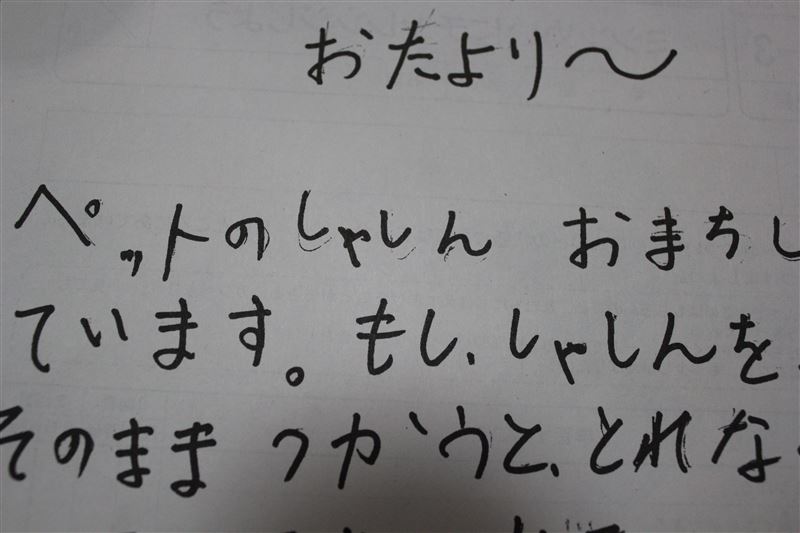 おたより〜
ペットのしゃしん おまちし
ています。もし、しゃしんを、
そのまま つかうと、とれな